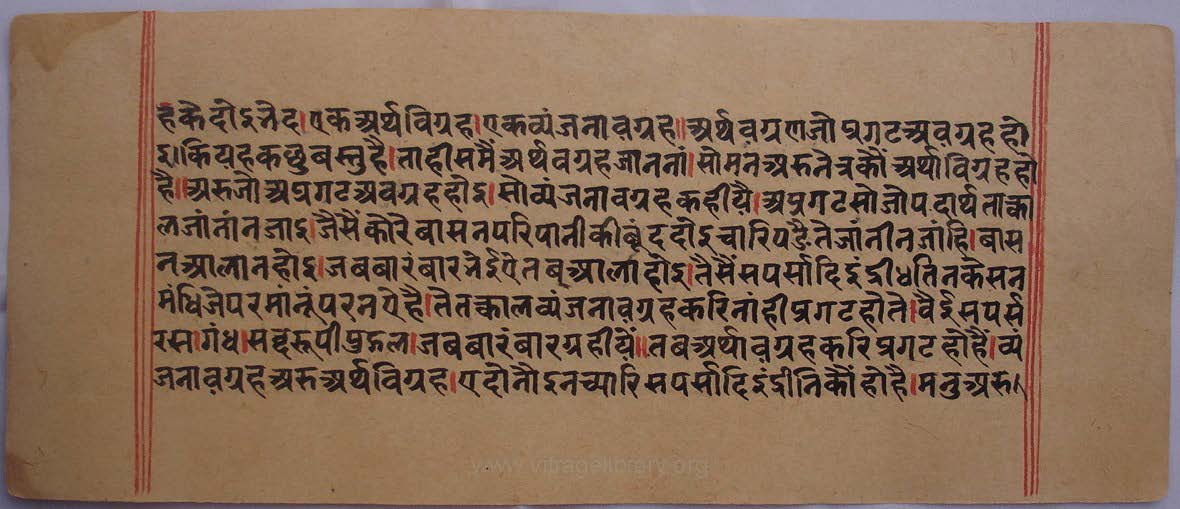 हकै दोइ भेद। एक अर्थविग्रह। एक व्यंजनावग्रह॥ अर्थवग्रण जो प्रगट अवग्रह हो
इ। कि यह कछु बस्तु है। ताही समैं अर्थवग्रह जाननां। सो मन अरु नेत्रकौं अर्थाविग्रह हो
है॥ अरु जो अप्रगट अवग्रह होइ। सो व्यंजनावग्रह कहीयै। अप्रगट सो जो पदार्थ ताका
ल जांनां न जाइ। जैसैं कोरे बासन परि पानीकी बूंद दोइ चारि पडै ते जांनी न जांहि। बास
न आला न होइ। जब बारंबार नेईये तब आला होइ। तैसैं सपर्सादि इंद्रीध तिनके सन
मंधि जे परमांनूं परनये है। ते तत्काल व्यंजनावग्रह करि नांही प्रगट होते। वैई सपर्स
रस। गंध। सब्दरूपी पुद्गल। जब बारंबार ग्रहीयें॥ तब अर्थावग्रह करि प्रगट हो है। व्यं
जनावग्रह अरु अर्थविग्रह। ए दोनौ इन च्यारि सपर्सादि इंद्रीनिकौं हो है। मनु अरु।
www.vitragelibrery.org